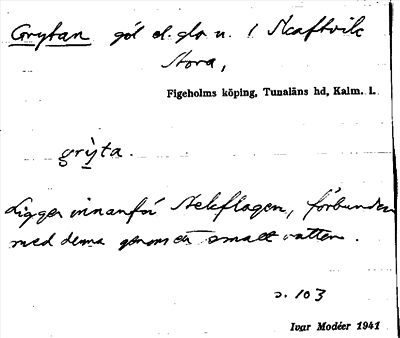 Grytan göl el. glo n. l Skaftvik
Stora,
Figeholms köping, Tunaläns hd, Kalm. l.
grỳta.
Ligger innanför Stekflagen, förbunden
med denna genom ett smalt vatten.
s. 103
Ivar Modéer 1941